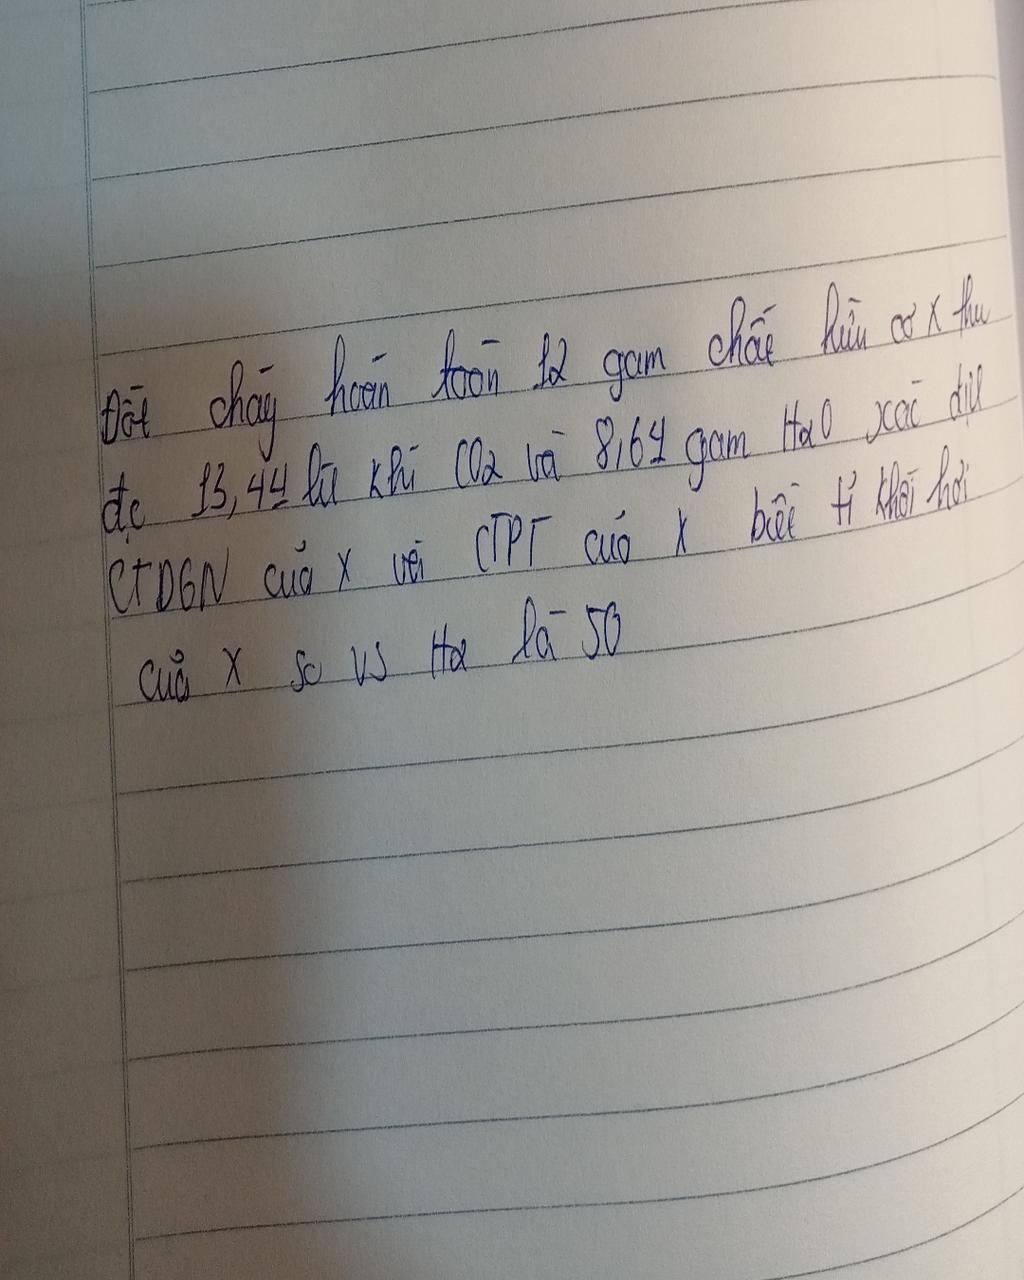 Đốt cháy hoàn toàn 12 gam chất hữu cơ X thu
đc 13,44 lít khí CO2 và 8,64 gam H2O xác địn
CTDGN của X với CTPT của X biết tỉ khối hơi
của X so vs H2 là 50